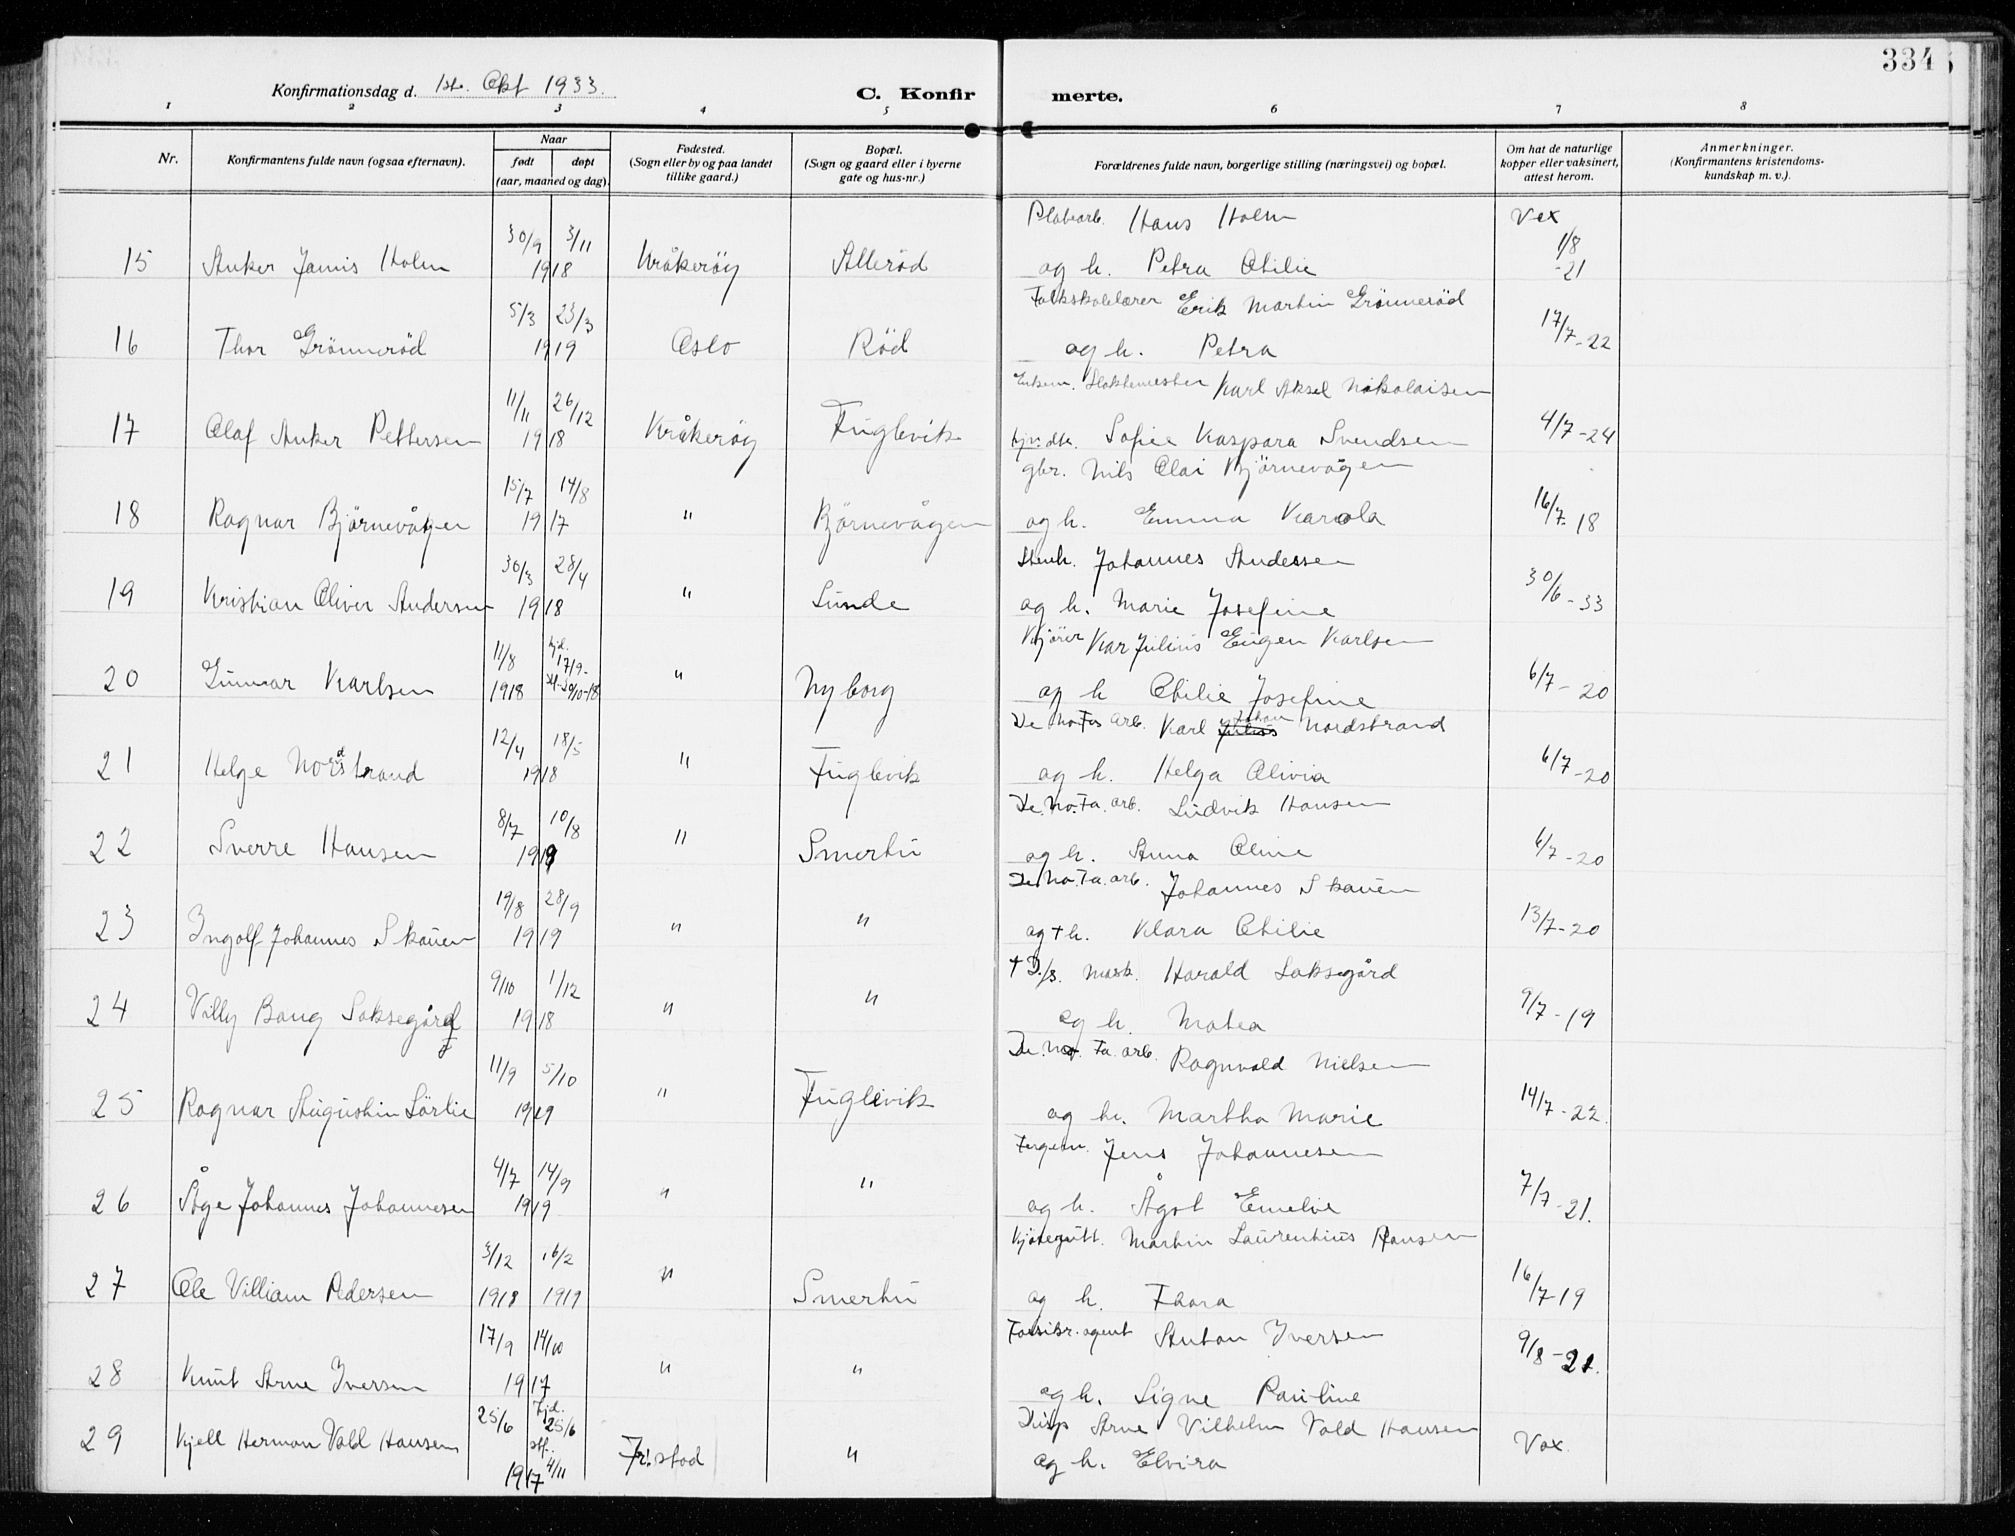 334
Konfirmationsdag d. 1ste. Okt 1933.
C. Konfirmerte.
1 2 3 4 5 6 7 8
Nr.
Konfirmantens fulde navn (ogsaa efternavn).
Naar
født døpt
(aar, maaned og dag).
Fødested.
(Sogn eller by og paa landet
tillike gaard.)
Bopæl.
(Sogn og gaard eller i byerne
gate og hus-nr.)
Forældrenes fulde navn, borgerlige stilling (næringsvei) og bopæl.
Om hat de naturlige
kopper eller vaksinert,
attest herom.
Anmerkninger.
(Konfirmantens kristendoms-
kundskap m. v.).
Hans Holm Vax
30/9 3/11 1/8
15 Anker Holm 1918 Kråkerøy Allerød og h. Petra Otilie -21
Folkskolelærer Erik Martin Grönnerød
5/3 23/3 17/7-22
16 Thor Grönneröd 1919 Oslo Röd og h. Petra
Karl Aksel Nikolaisen
11/11 26/12
17 Olaf Anker Pettersen 1918 Kråkerøy Fuglevik Sofie Kaspara Svendsen 4/7-24
gbr. Nils Olai Björnevågen
15/7 14/8
18 Ragnar Björnevågen 1917 " Björnevågen og h. Emma Karola 16/7-18
Stenh. Johannes Andessen
30/3 28/4
19 Kristian Oliver Andersen 1918 " Lunde og h. Marie Josefine 30/6-33
Kjörer Karl Julius Eugen Karlsen
11/8 hjd. 17/9-
20 Gunnar Karlsen 1918 " Nyborg og h Otilie Josefine 6/7-20
De.No.Fa arb. Karl Johan Nordstrand
12/4 18/5
21 Helge Nordstrand 1918 " Fuglevik og h. Helga Olivia 6/7-20
De.No.Fa. arb. Ludvik Hansen
8/7 10/8
22 Sverre Hansen 1919 " Smertu og h. Anna Oline 6/7-20
De.No.Fa. arb. Johannes Skauen
19/8 28/9
23 Ingolf Johannes Skauen 1919 " " og + h. Klara Otilie 13/7-20
+ D./s. mask. Harald Saksegård
9/10 1/12
24 Villy Bang Saksegård 1918 " " og h. Matea 9/7-19
De.No. Fa. arb. Ragnvald Nielsen
11/9 5/10
25 Ragnar Augustin Lörlie 1919 " Fuglevik og h. Martha Marie 14/7-22.
Jens Johannesen
4/7 14/9
26 Åge Johannes Johannesen 1919 " " og h. Ågot Emelie 7/7-21.
Martin Laurentius Hansen
3/12 16/2
27 Ole Villiam Pedersen 1918 1919 " Smertu og h. Thora 16/7-19
agent Anton Iversen
17/9 14/10
28 Knut Arne Iversen 1917 " " og h. Signe Pauline 9/8-21.
Disp Arne Vilhelm Vold Hansen
25/6 hjd. 25/6
29 Kjell Herman Vold Hansen 1917 stf. 4/11 Fr.stad " og h. Elvira Vax